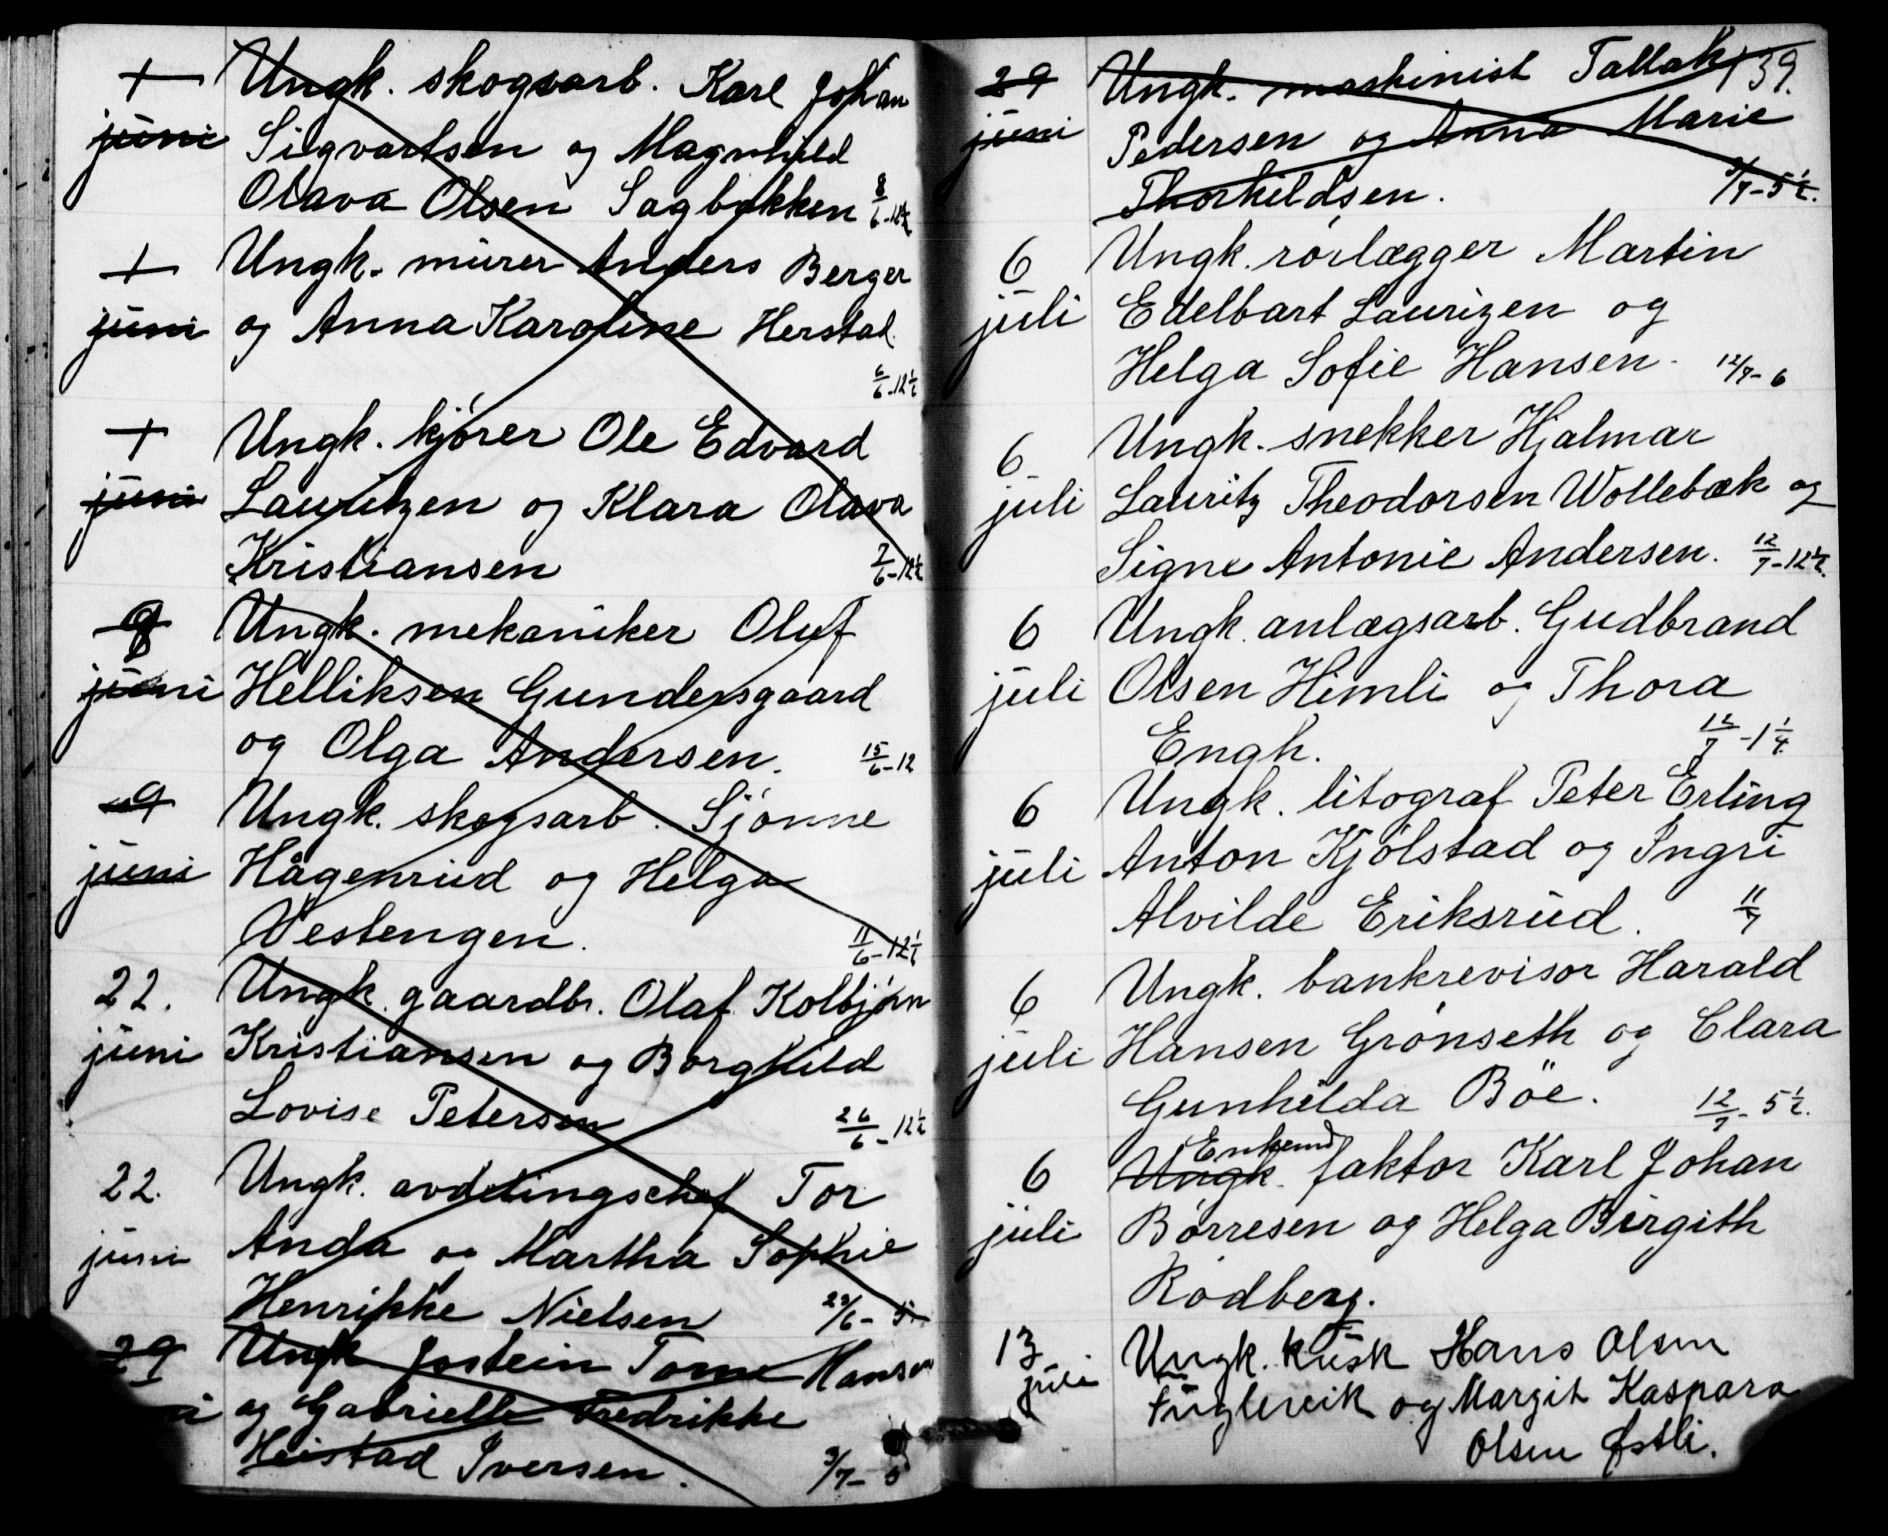 + Ungk. skogsarb. Karl Johan
juni Sigvartsen og Magnhild
Olava Olsen Sagbakken 8/6-12½
+ Ungk. murer Anders Berger
juni og Anna Karoline Herstad
6/6-12½
+ Ungk. kjører Ole Edvard
juni Lauritzen og Klara Olava
Kristiansen 7/6-12½
8 Ungk. mekaniker Oluf
juni Helliksen Gundersgaard
og Olga Andersen. 15/6-12
9 Ungk. skogsarb. Sjønne
juni Hågenrud og Helga
Vestengen. 11/6-12½
22. Ungk. gaardbr. Olaf Kolbjørn
juni Kristiansen og Borghild
Lovise Petersen 26/6-12½
22. Ungk. avdelingschef Tor
juni Anda og Martha Sophie
Henrikke Nielsen 22/6-5
29 Ungk. Jostein Torne Hansen
og Gabrielle Fredrikke
Heistad Iversen. 3/7-5
29 Ungk. maskinist Tallak 139.
juni Pedersen og Anna Marie
Thorkildsen. 3/7-5½.
6 Ungk. rørlægger Martin
juli Edelbart Laurizen og
Helga Sofie Hansen. 12/7-6
6 Ungk. snekker Hjalmar
juli Lauritz Theodorsen Wollebæk og
Signe Antonie Andersen. 12/7-12½.
6 Ungk. anlægsarb. Gudbrand
juli Olsen Himli og Thora
Engh. 12/7-1¼
6 Ungk. litograf Peter Erling
juli Anton Kjølstad og Ingri
Alvilde Eriksrud. 11/7
6 Ungk. bankrevisor Harald
juli Hansen Grønseth og Clara
Gunhilda Böe. 12/7-5½.
Enkemd
6 Ungk. faktor Karl Johan
juli Børresen og Helga Birgith
Rødberg.
13 Ungk. kusk Hans Olsen
juli Fuglevik og Margit Kaspara
Olsen Østli.